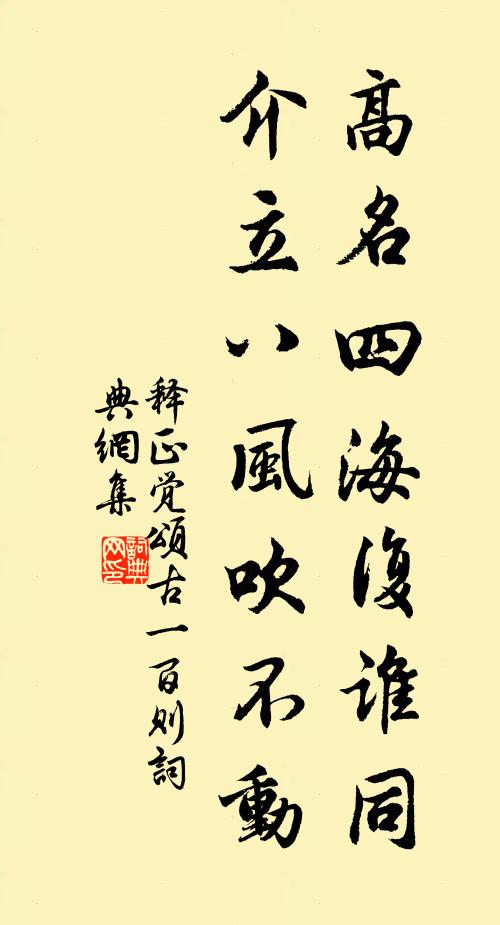 高名四海復誰同
介立八風吹不動
释正觉頌古一百则詞
典網集
詞典
网印